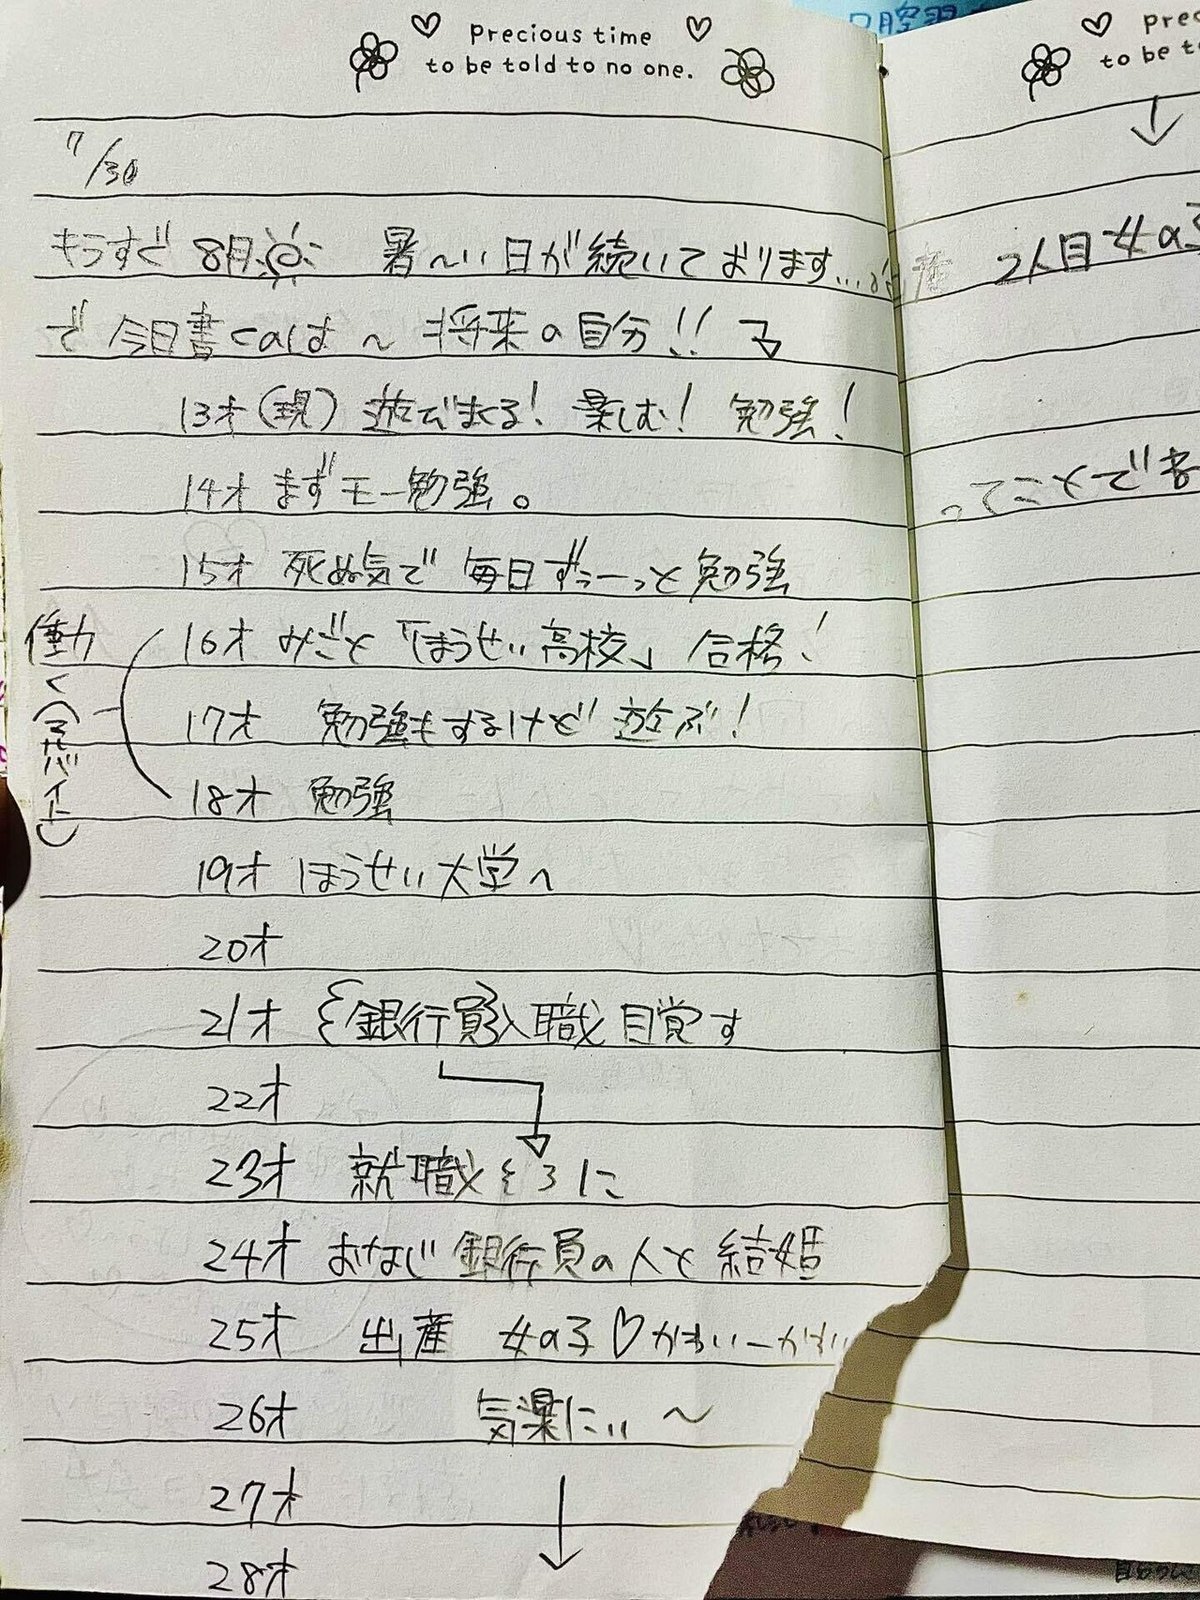 precious time
to be told to no one.
7/30
もうすぐ 8月 暑〜い日が続いております...
で 今日書くのは 〜 将来の自分!!
13才(現) 遊びまくる! 楽しむ! 勉強!
14才 まずモー勉強。
15才 死ぬ気で 毎日ずぅーっと勉強
16才 みごと「ほうせい高校」合格!
17才 勉強もするけど 遊ぶ!
18才 勉強
働く(アルバイト)
19才 ほうせい大学へ
20才
21才 {銀行員}入職目覚す
22才
23才 就職そろに
24才 おなじ銀行員の人と結婚
25才 出産 女の子♡かわいーかわい
26才 気楽にぃ〜
27才
28才
precious
to be t
2人目女の子
ってことで